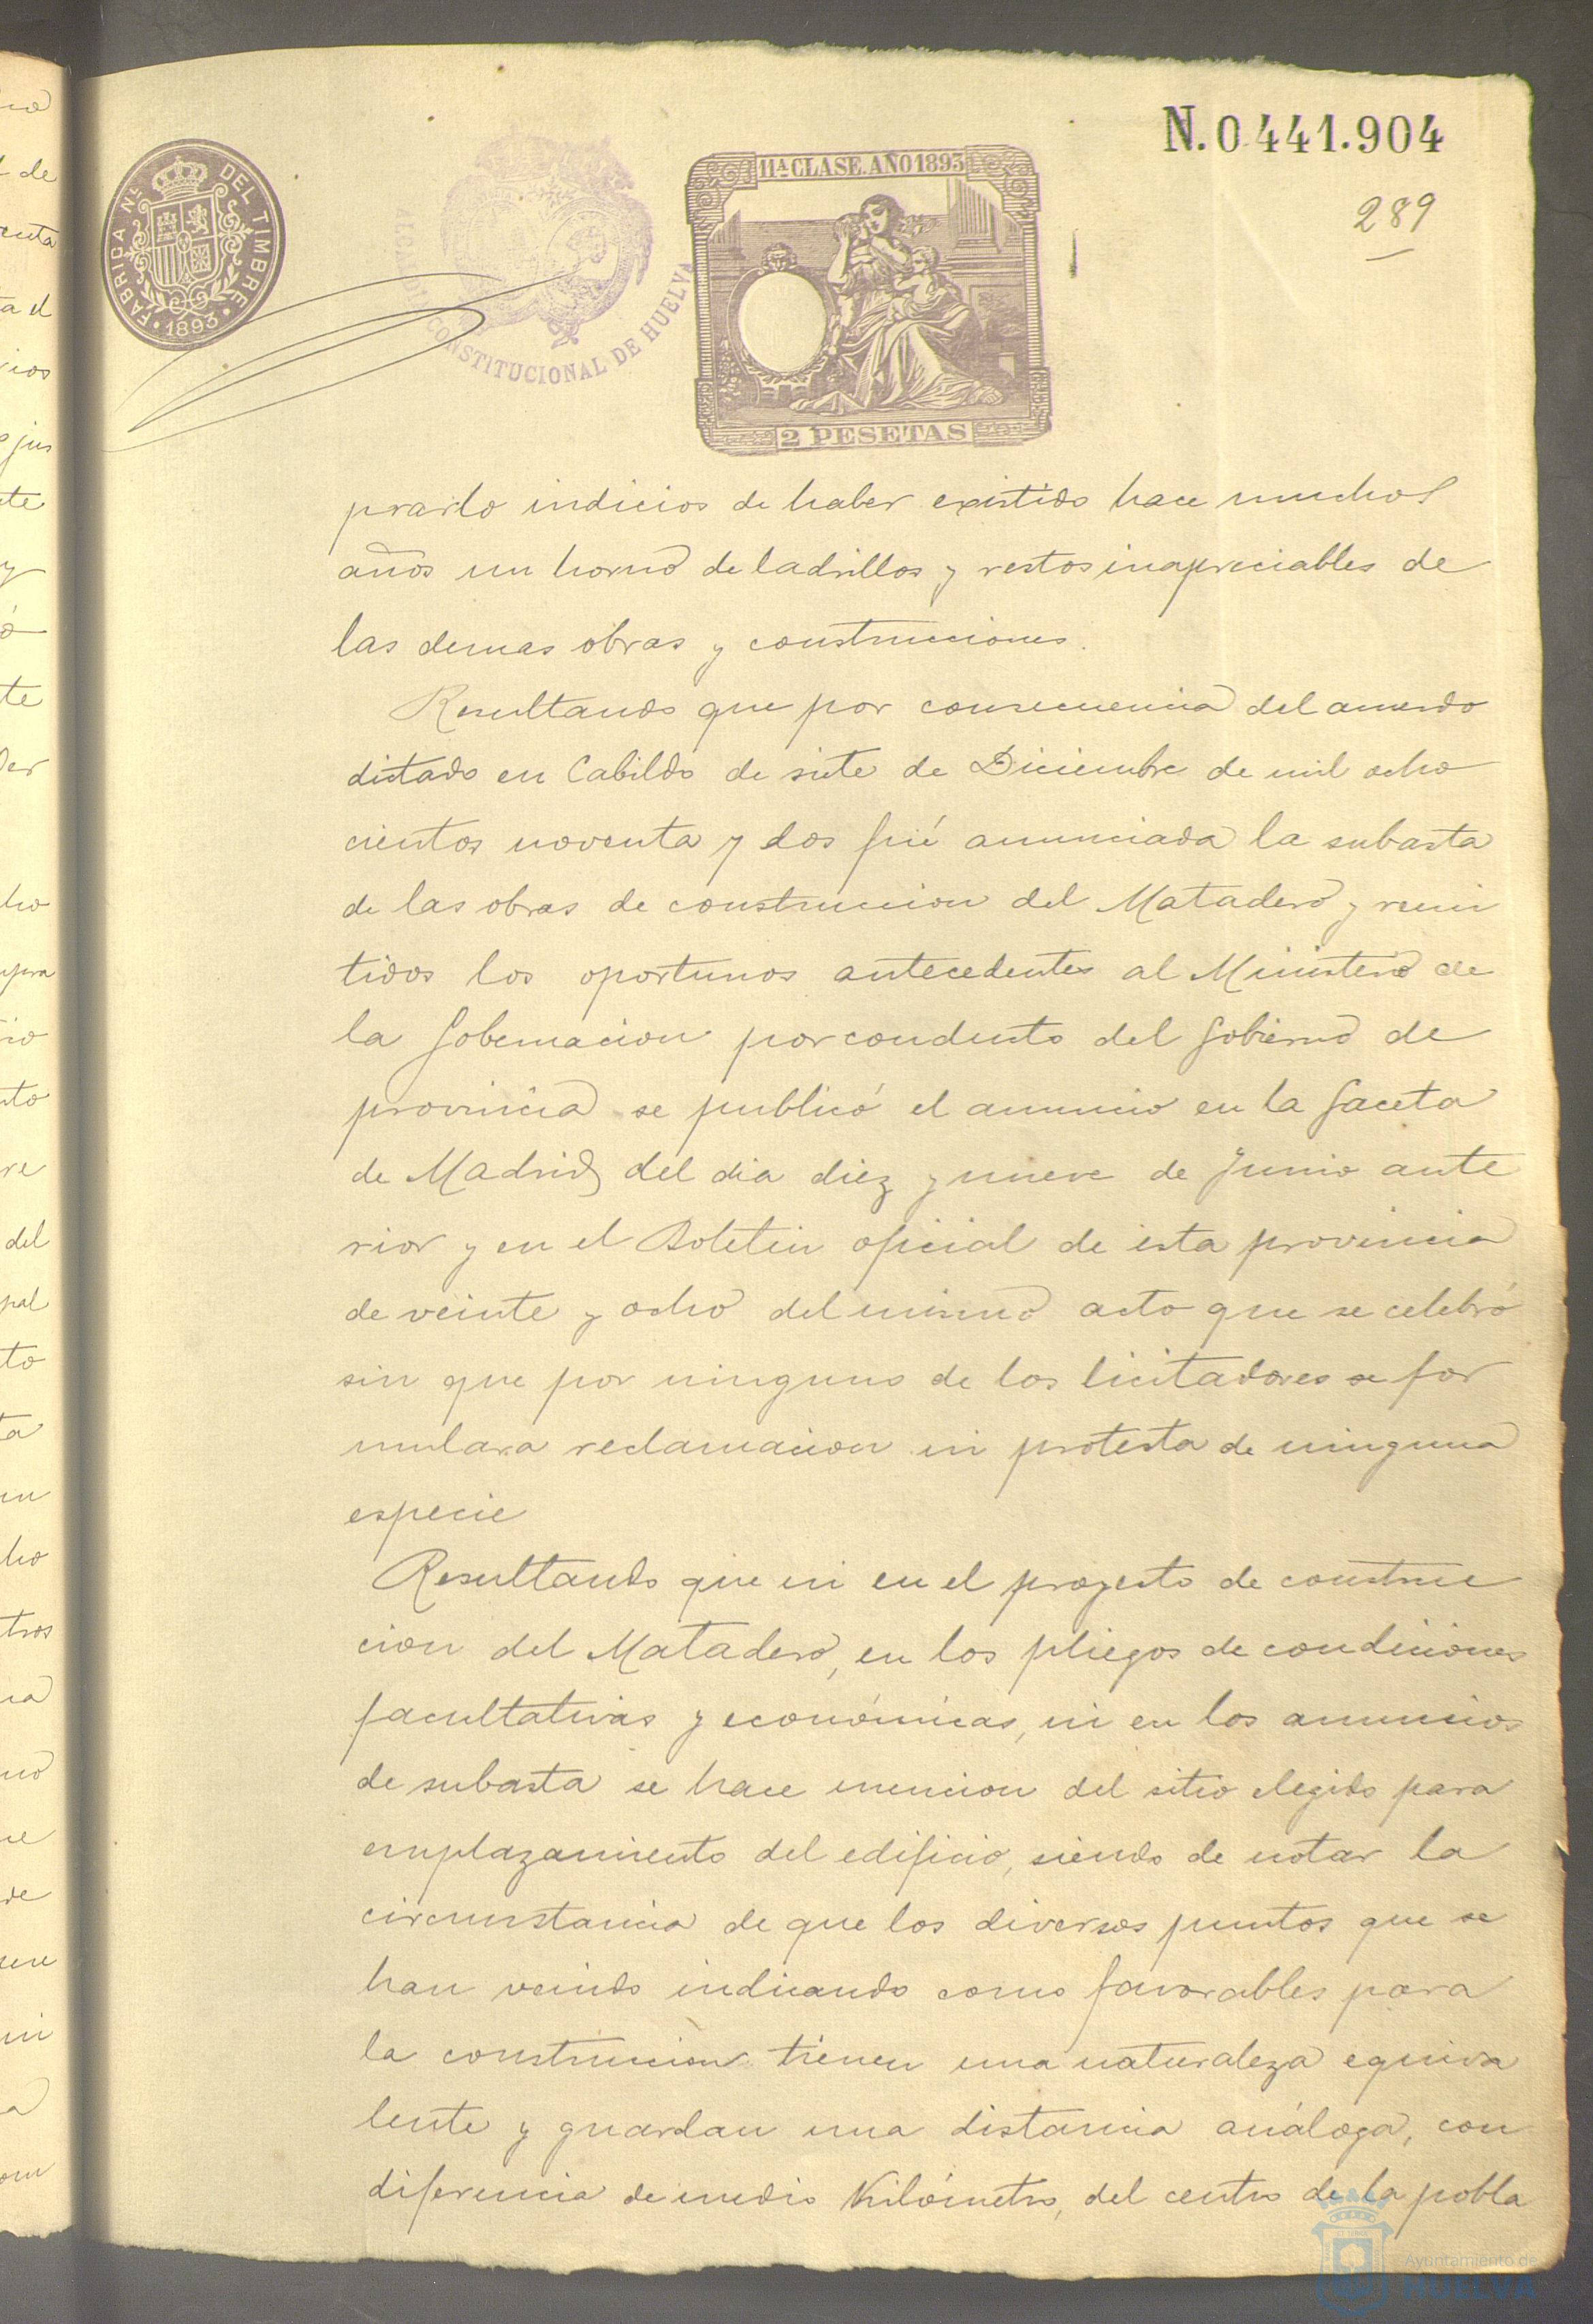 N.0.441.904
289
FABRICA NL. DEL TIMBRE
1893
ALCALDIA CONSTITUCIONAL DE HUELVA
11ª CLASE. AÑO 1893
2 PESETAS
prarlo indicios de haber existido hace muchos
años un horno de ladrillos y restos inapreciables de
las demas obras y construcciones.
Resultando que por consecuencia del acuerdo
dictado en Cabildo de siete de Diciembre de mil ocho
cientos noventa y dos fué anunciada la subasta
de las obras de construccion del Matadero y remi
tidos los oportunos antecedentes al Ministerio de
la Gobernacion por conducto del Gobierno de
provincia se publicó el anuncio en la Gaceta
de Madrid del dia diez y nueve de Junio ante
rior y en el Boletin oficial de esta provincia
de veinte y ocho del mismo acto que se celebró
sin que por ninguno de los licitadores se for
mulara reclamacion ni protesta de ninguna
especie
Resultando que ni en el proyecto de construc
cion del Matadero, en los pliegos de condiciones
facultativas y económicas, ni en los anuncios
de subasta se hace mencion del sitio elegido para
emplazamiento del edificio, siendo de notar la
circunstancia de que los diversos puntos que se
han venido indicando como favorables para
la construccion tienen una naturaleza equiva
lente y guardan una distancia análoga, con
diferencia de medio Kilómetro, del centro de la pobla
Ayuntamiento de
HUELVA